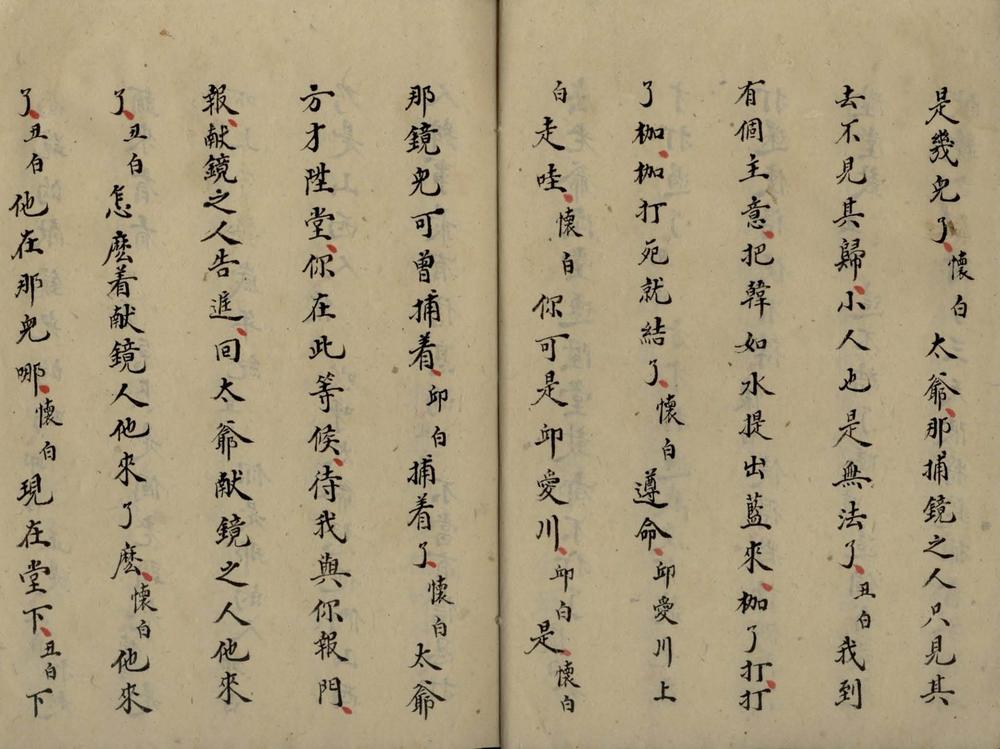 是幾皃了、懷白太爺、那捕鏡之人只見其
去不見其歸、小人也是無法了、丑白我到
有個主意、把韓如水提出藍來、枷了打、打
了枷、枷打死就結了、懷白遵命、邱愛川上
白走哇、懷白你可是邱愛川、邱白是、懷白
那鏡皃可曾捕着、邱白捕着了、懷白太爺
方才陞堂、你在此等候、待我與你報門、
報、献鏡之人告進、回太爺献鏡之人他來
了、丑白怎麽着献鏡人他來了麽、懷白他來
了、丑白他在那皃哪、懷白現在堂下、丑白下